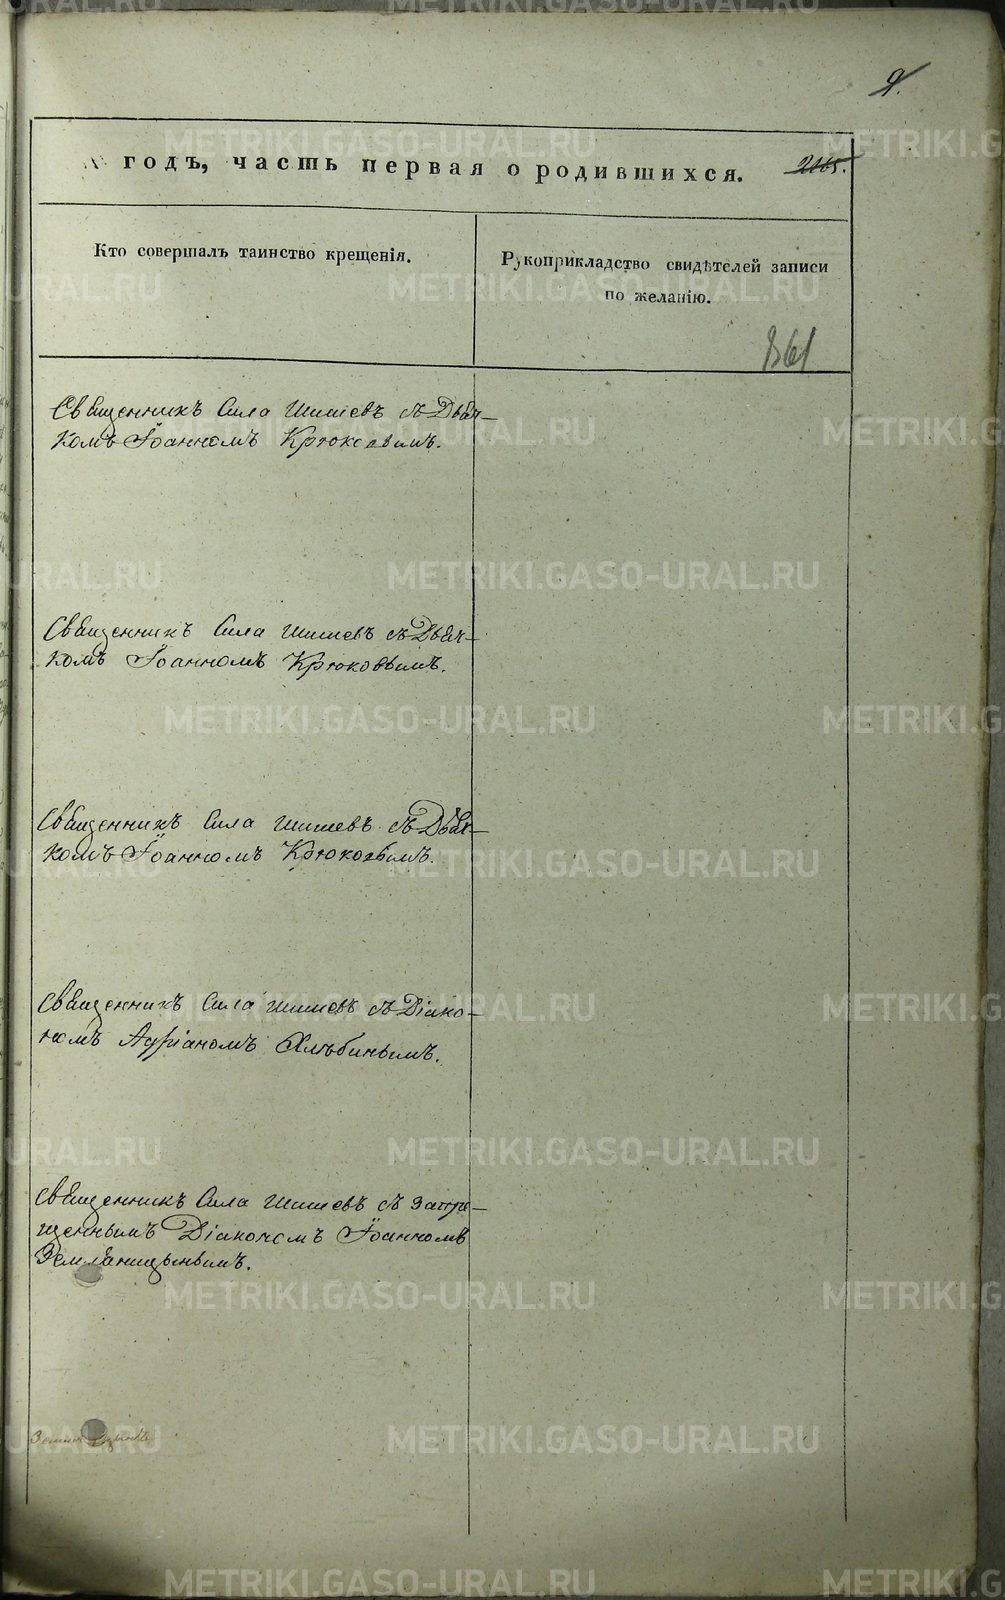 METRIKI.GASO-URAL.RU
9.
годъ, часть первая о родившихся.
2165.
Кто совершалъ таинство крещенія.
Рукоприкладство свидѣтелей записи
по желанію.
861
Священникъ Сила Шишевъ съ Дьяч-
комъ Іоанномъ Крюковымъ.
Священникъ Сила Шишевъ съ Дьяч-
комъ Іоанномъ Крюковымъ.
Священникъ Сила Шишевъ съ Дьяч-
комъ Іоанномъ Крюковымъ.
Священникъ Сила Шишевъ съ Діако-
номъ Адріаномъ Хлѣбинымъ.
Священникъ Сила Шишевъ съ Запре-
щеннымъ Діакономъ Іоанномъ
Земляницынымъ.